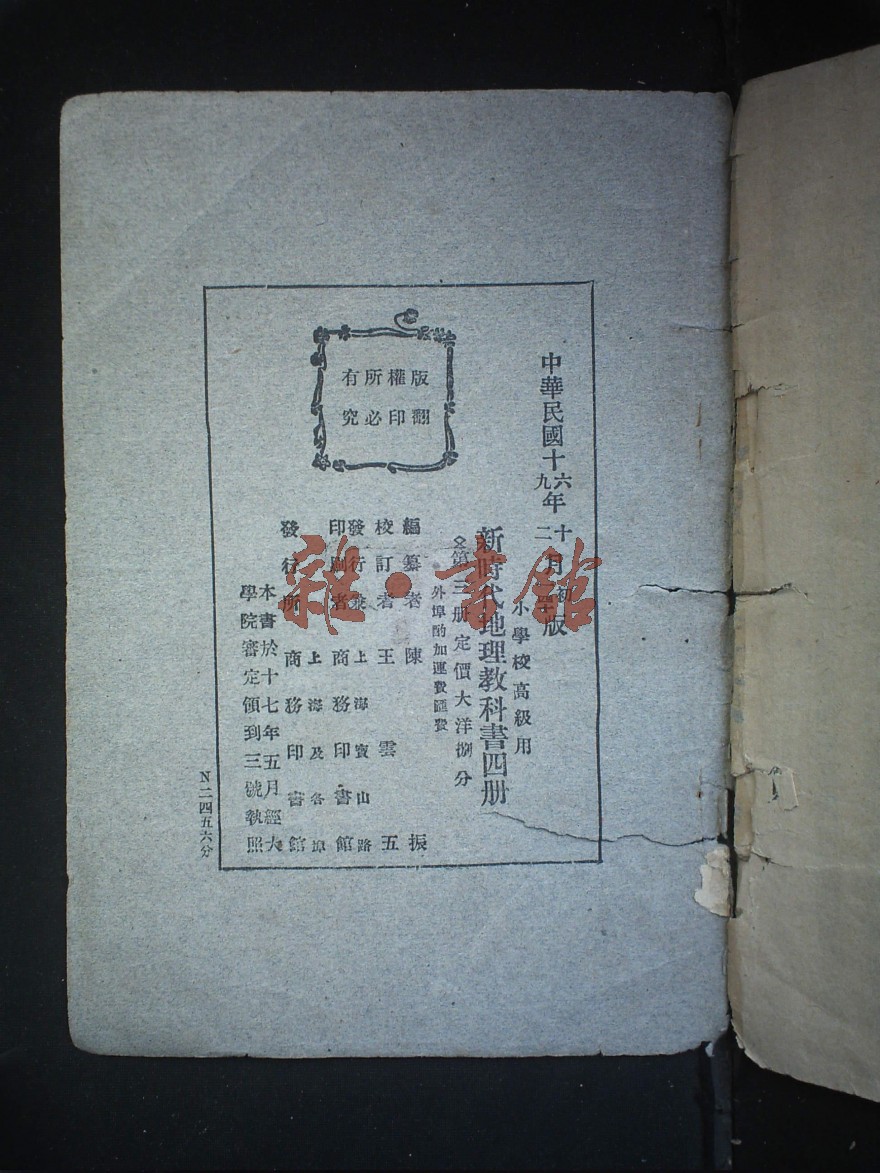 中華民國十六九年十二月初版
小學校高級用
新時代地理教科書四册
第三册定價大洋捌分
外埠酌加運費匯費
編纂者 陳振
校訂者 王雲五
發行兼印刷者 上海寶山路 商務印書館
發行所 上海及各埠 商務印書館
版權所有
翻印必究
本書於十七年五月經大
學院審定領到三號執照
N二四五六分
雜·書館